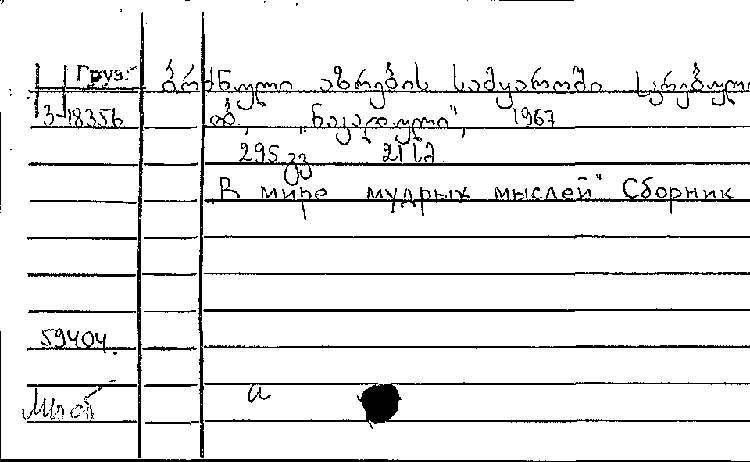 Груз.
ბრძნული აზრების სამყაროში კრებული
3-18356
თბ., „ნაკადული“, 1967
295 გვ 21 სმ
В мире мудрых мыслей" Сборник
59404.
а